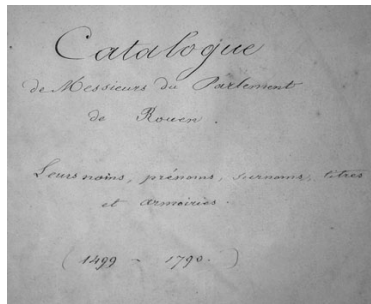 Catalogue
de Messieurs du Parlement
de Rouen.
Leurs noms, prénoms, surnoms, titres
et armoiries.
(1499 - 1790.)